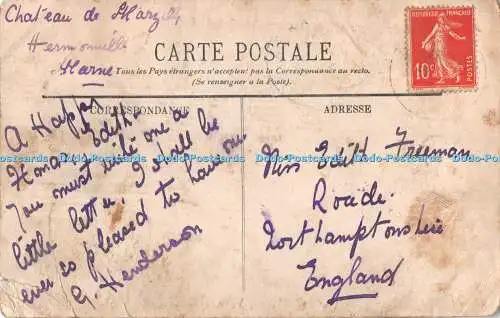 Chateau de Marzilly
Hermonville
Marne
CARTE POSTALE
Tous les Pays étrangers n'acceptent pas la Correspondance au recto.
(Se renseigner à la Poste).
REPUBLIQUE FRANÇAISE
10c
POSTES
CORRESPONDANCE
A Happy
Honard Edith
You must write me a
little letter. I shall be
ever so pleased to have one.
G. Henderson
ADRESSE
Miss Edith Freeman
Roade
Northamptonshire
England
Postcards Dodo-Postcards Dodo-Postcards Dodo-Postcards Dodo-Postcards